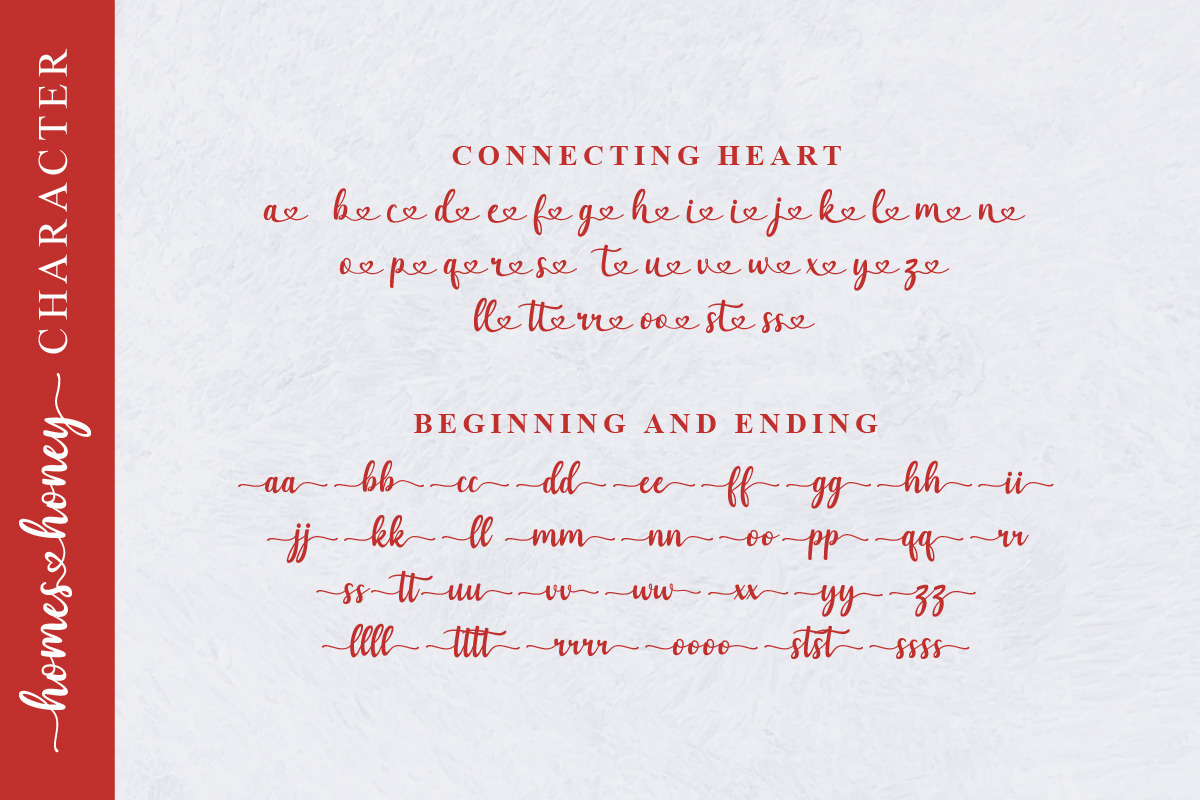 homes honey CHARACTER
CONNECTING HEART
a b c d e f g h i i j k l m n
o p q r s t u v w x y z
ll tt rr oo st ss
BEGINNING AND ENDING
aa bb cc dd ee ff gg hh ii
jj kk ll mm nn oo pp qq rr
ss tt uu vv ww xx yy zz
llll tttt rrrr oooo stst ssss